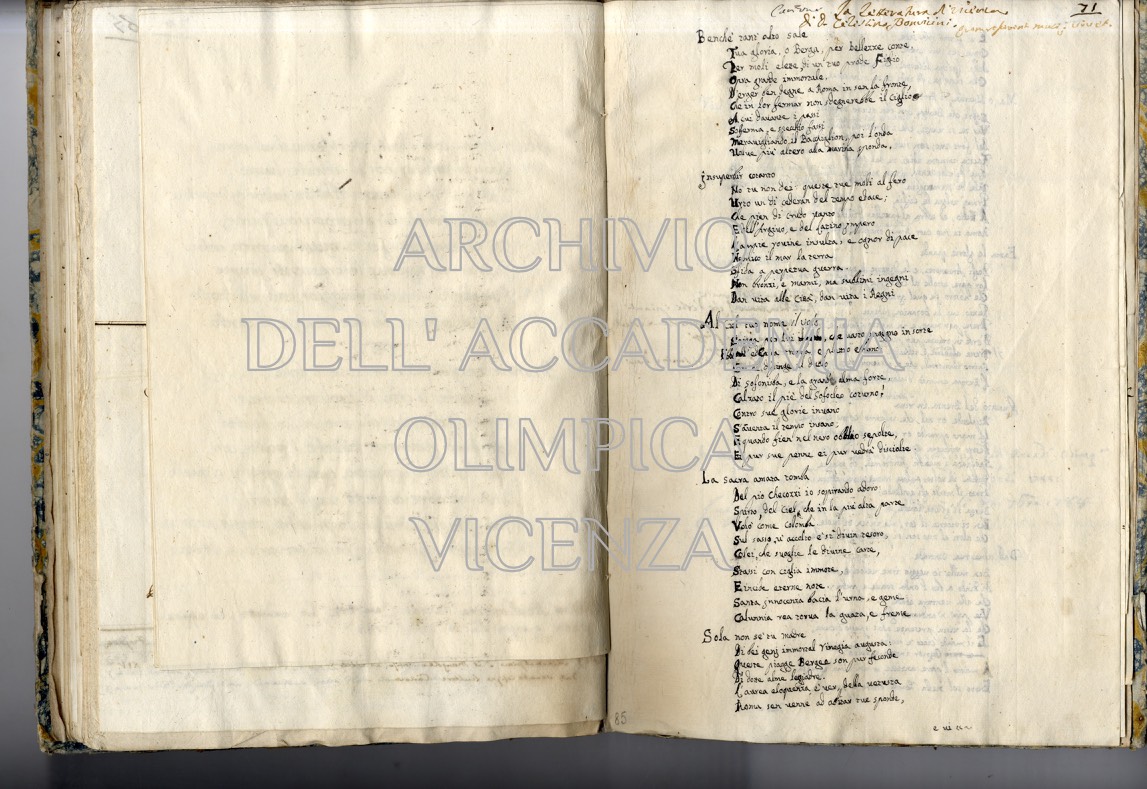 71
Canzone la letteratura di Vicenza
di D. Celestino Bonvicini.
Benchè tant'alto sale
Tua gloria, o Berga, per bellezze conte,
Per moli elette di un tuo prode Figlio
Opra grande immortale,
D'erger ben degne a Roma in sen la fronte,
Che in lor fermar non sdegnerebbe il Ciglio
A cui davante i passi
Sofferma, e specchio fassi
Meravigliando il Bacchiglion, poi l'onda
Volve più altero alla marina sponda.
Insuperbir cotanto
No tu non dei: queste tue moli al fero
Urto un dì cederan del tempo edace;
Che pien di crudo vanto
E dell'Argivo, e del Latino Impero
L'ampie rovine insulta, e ognor di pace
Nemico il mar la terra
Sfida a perpetua guerra.
Non bronzi, e marmi, ma sublimi ingegni
Dan vita alle Città, dan vita i Regni
Al ciel tuo nome il volo
per lui che vasto ingegno in sorte
e
Di Sofonisba, e la grand'alma forte,
Calzato il piè del Sofocleo coturno!
Contro sue glorie invano
S'avventa il tempo insano;
quando fien nel nero obblio sepolte,
Ei pur sue penne ei pur vedrà disciolte.
La sacra amata tomba
Del pio Checozzi io sospirando adoro
Spirto del Ciel, che in la più alta parte
Volò come Colomba
Sul sasso, u' accolto è sì divin tesoro,
Colei, che svoglie le divine carte,
Stassi con ciglia immote,
E incide eterne note.
Santa Innocenza bacia l'urna, e geme
Calunnia rea torva la guata, e freme
Sola non se' tu madre
Di dei genj immortal Vinegia augusta:
Queste piagge Bergee son pur feconde
Di dotte alme leggiadre.
L'aurea eloquenza è ver, della vetusta
Roma sen venne ad abitar tue sponde,
e vi
85
ARCHIVIO
DELL' ACCADEMIA
OLIMPICA
VICENZA